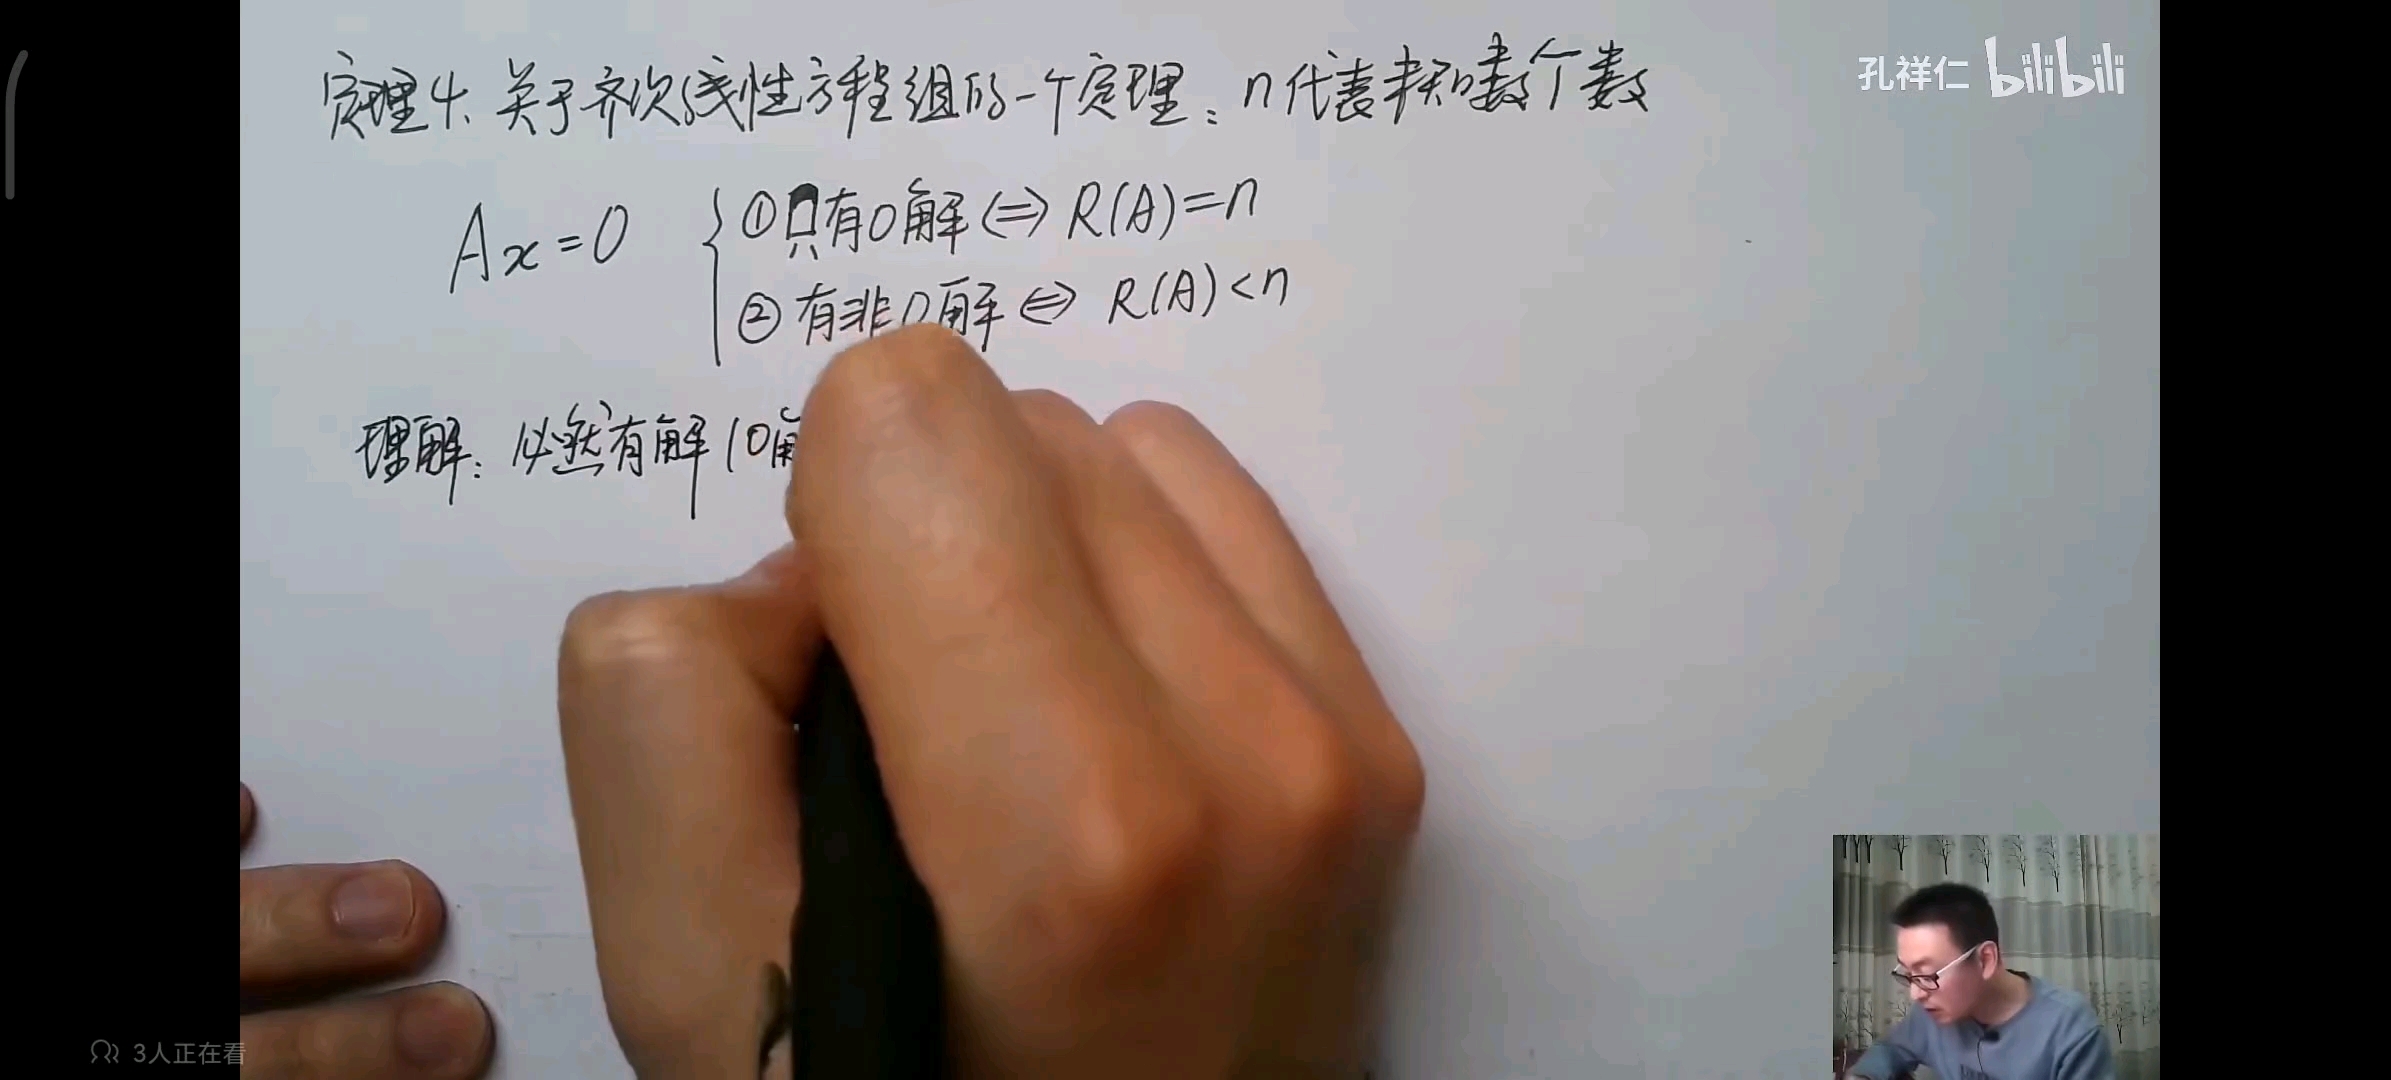 定理4、关于齐次线性方程组的一个定理：n代表未知数个数
孔祥仁 bilibili
Ax=0
①只有0解⇔R(A)=n
②有非0解⇔R(A)<n
理解：必然有解(0解
3人正在看